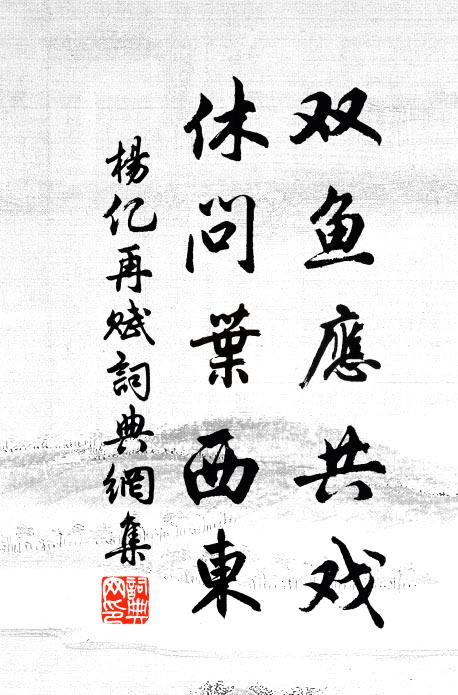 双鱼應共戏
休問葉西東
楊亿再赋詞典網集
詞典网印